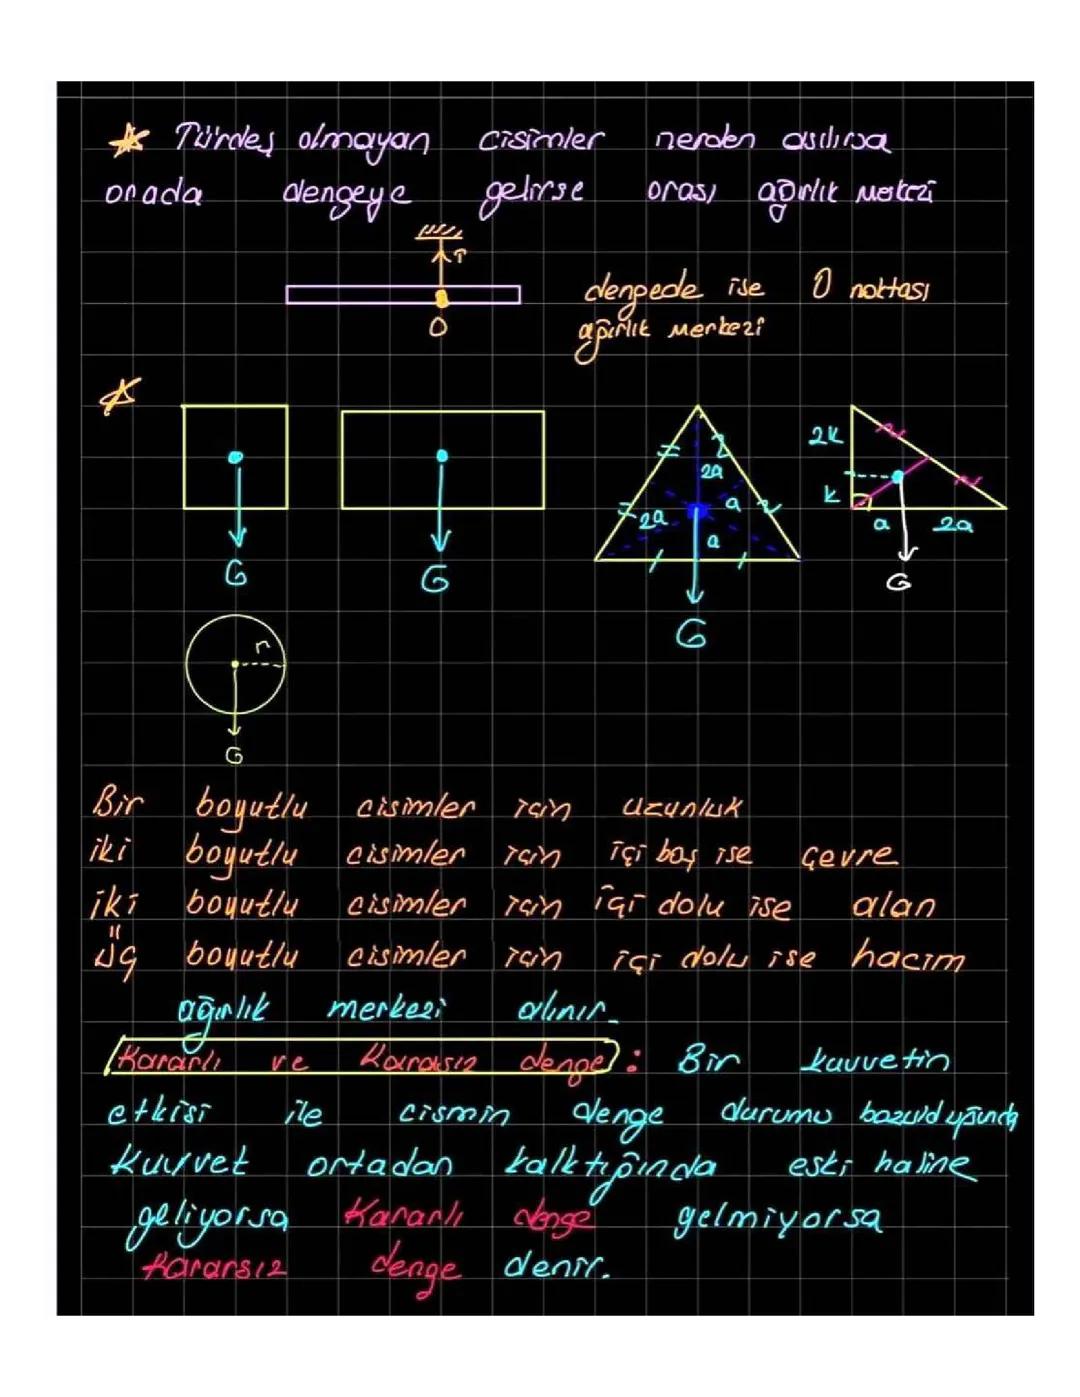 Türdeş olmayan cisimler nerden asılırsa
orada dengeye gelirse orası ağırlık merkezi
T
O
dengede ise O noktası
ağırlık merkezi
G
G
2a
a
2a
a
G
2k
k
a
2a
G
r
G
Bir boyutlu cisimler için uzunluk
iki boyutlu cisimler için içi boş ise çevre
iki boyutlu cisimler için içi dolu ise alan
üç boyutlu cisimler için içi dolu ise hacim
ağırlık merkezi alınır.
Kararlı ve Kararsız denge: Bir kuvvetin
etkisi ile cismin denge durumu bozulduğunda
Kuvvet ortadan kalktığında eski haline
geliyorsa Kararlı denge gelmiyorsa
Kararsız denge denir.